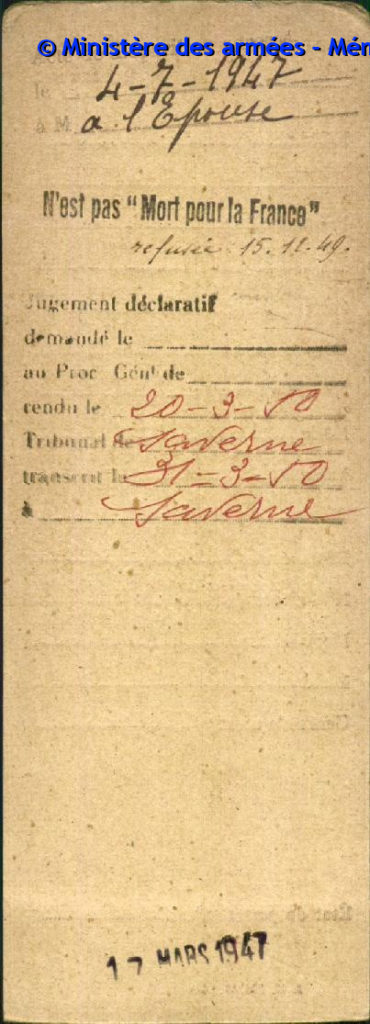 © Ministère des armées - Mém
le 4-7-1947
à M a l'Epouse
N'est pas "Mort pour la France"
refusée 15.12.49.
Jugement déclaratif
demandé le
au Proc Génal de
rendu le 20-3-50
Tribunal de Saverne
transcrit le 31-3-50
à Saverne
17 MARS 1947